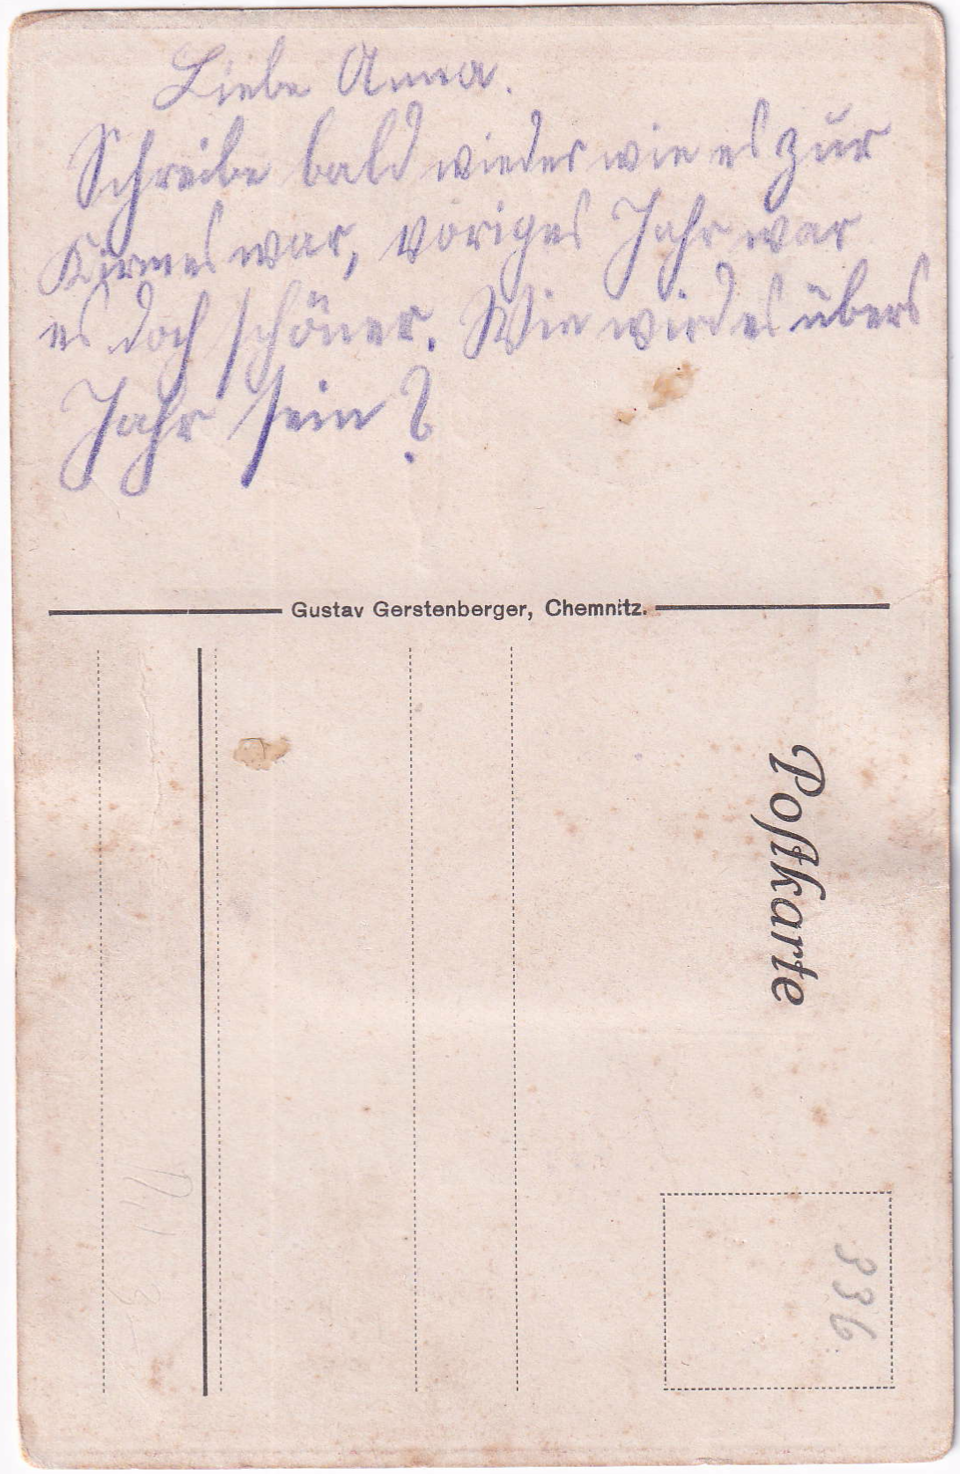 Liebe Anna.
Schreibe bald wieder wie es zur
Kirmes war, voriges Jahr war
es doch schöner. Wie wird es übers
Jahr sein?
Gustav Gerstenberger, Chemnitz.
Poſtkarte
336